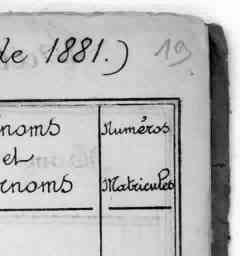 de 1881.) 19
noms
et
rnoms
Numéros
Matricules